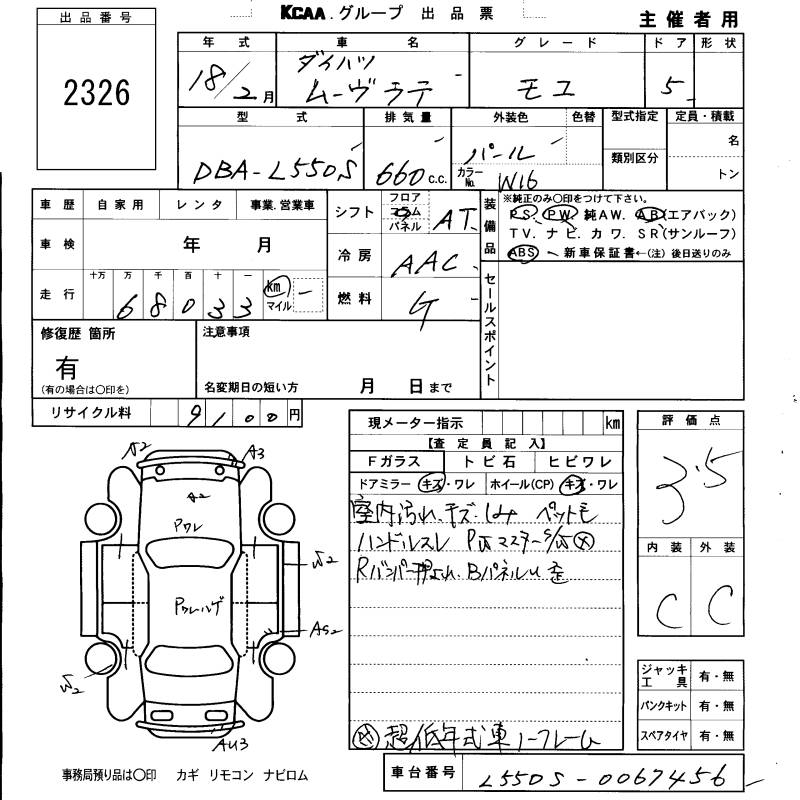 出品番号
2326
KCAA.グループ 出品票
主催者用
年式 車名 グレード ドア 形状
18/2月 ダイハツ ムーヴラテ モユ 5
型式 排気量 外装色 色替 型式指定 定員・積載
DBA-L550S 660c.c. パール
カラーNo. W16
類別区分 名
トン
車歴 自家用 レンタ 事業.営業車
車検 年 月
走行 十万 万 千 百 十 一
68033 Km マイル
シフト フロア コラム パネル AT
冷房 AAC
燃料 G
装備品
※純正のみ〇印をつけて下さい。
PS, PW, 純AW. AB(エアバック)
TV. ナビ. カワ. SR(サンルーフ)
ABS 新車保証書←(注) 後日送りのみ
セールスポイント
修復歴 箇所
有
(有の場合は〇印を)
注意事項
名変期日の短い方 月 日まで
リサイクル料 9100円
現メーター指示 km
【査定員記入】
Fガラス トビ石 ヒビワレ
ドアミラー キズ・ワレ ホイール(CP) キズ・ワレ
室内汚れ.キズ.しみ ペット毛
ハンドルスレ
Rバンパー押され.Bパネルu歪
超低年式車ノークレーム
評価点
3.5
内装 外装
C C
A3
A2
Pワレ
Pワレハゲ
W2
AS2
W2
AU3
ジャッキ工具 有・無
パンクキット 有・無
スペアタイヤ 有・無
事務局預り品は〇印 カギ リモコン ナビロム
車台番号 L550S-0067456